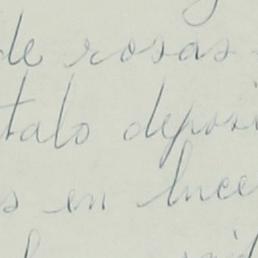 de rosas
talo deposi
s en luce